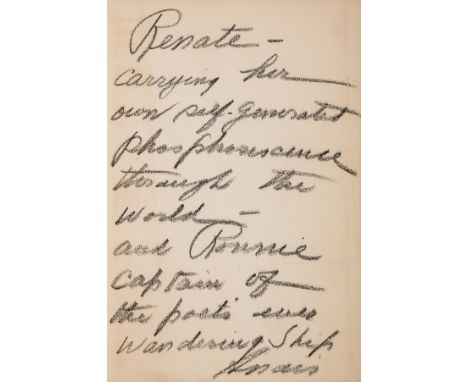 Renate —
carrying her
own self-generated
phosphorescence
through the
world —
and Ronnie
Captain of
the poets ever
Wandering Ship
Anaïs